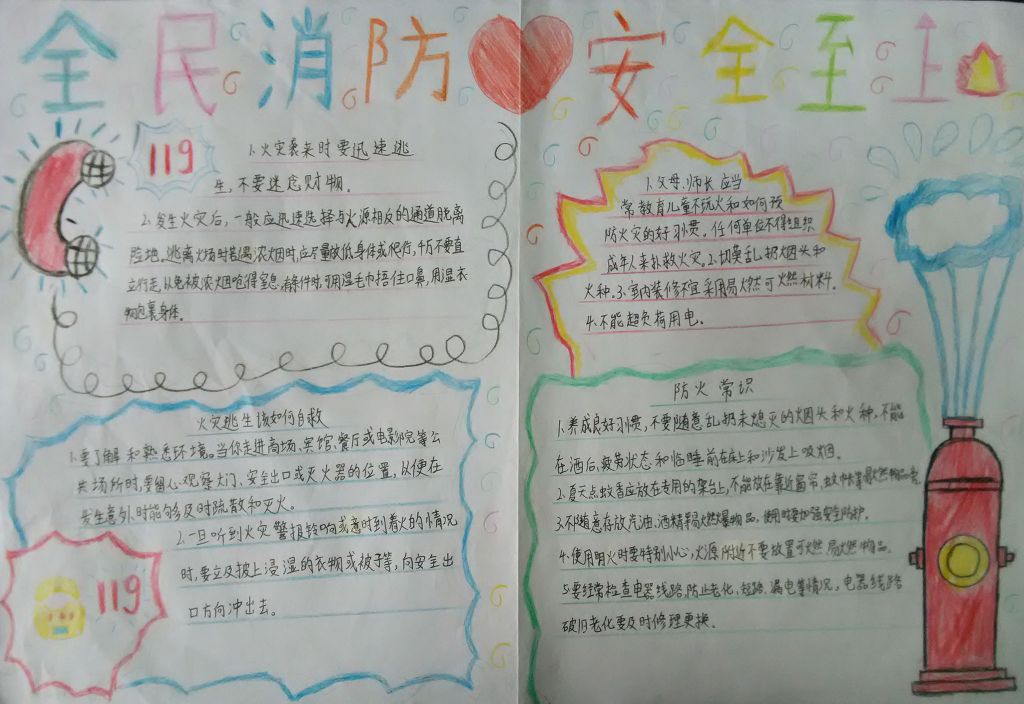 全民消防 安全至上
119
1.火灾袭来时要迅速逃
生,不要迷恋财物。
2.发生火灾后,一般应迅速选择与火源相反的通道脱离
险地。逃离火场时若遇浓烟时,应尽量放低身体或爬行,千万不要直
立行走,以免被浓烟呛得窒息.有条件时,可用湿毛巾捂住口鼻,用湿衣
物包裹身体。
火灾逃生该如何自救
1.要了解和熟悉环境。当你走进商场、宾馆、餐厅或电影院等公
共场所时,要留心观察大门、安全出口或灭火器的位置,以便在
发生意外时能够及时疏散和灭火。
2.一旦听到火灾警报铃响或意时到着火的情况
时,要立及披上浸湿的衣物或被子等,向安全出
口方向冲出去。
119
1.父母、师长应当
常教育儿童不玩火和如何预
防火灾的好习惯,任何单位不得组织
成年人来扑救火灾。2.切莫乱扔烟头和
火种。3.室内装修不宜采用易燃可燃材料.
4.不能超负荷用电。
防火常识
1.养成良好习惯,不要随意乱扔未熄灭的烟头和火种,不能
在酒后,疲劳状态和临睡前在床上和沙发上吸烟。
2.夏天点蚊香应放在专用的架台上,不能放在靠近窗帘,蚊帐等易燃物品旁。
3.不随意存放汽油、酒精等易燃易爆物品,使用时要加强安全防护.
4.使用明火时要特别小心,火源附近不要放置可燃易燃物品.
5.要经常检查电器线路,防止老化、短路、漏电等情况,电器线路
破旧老化要及时修理更换.